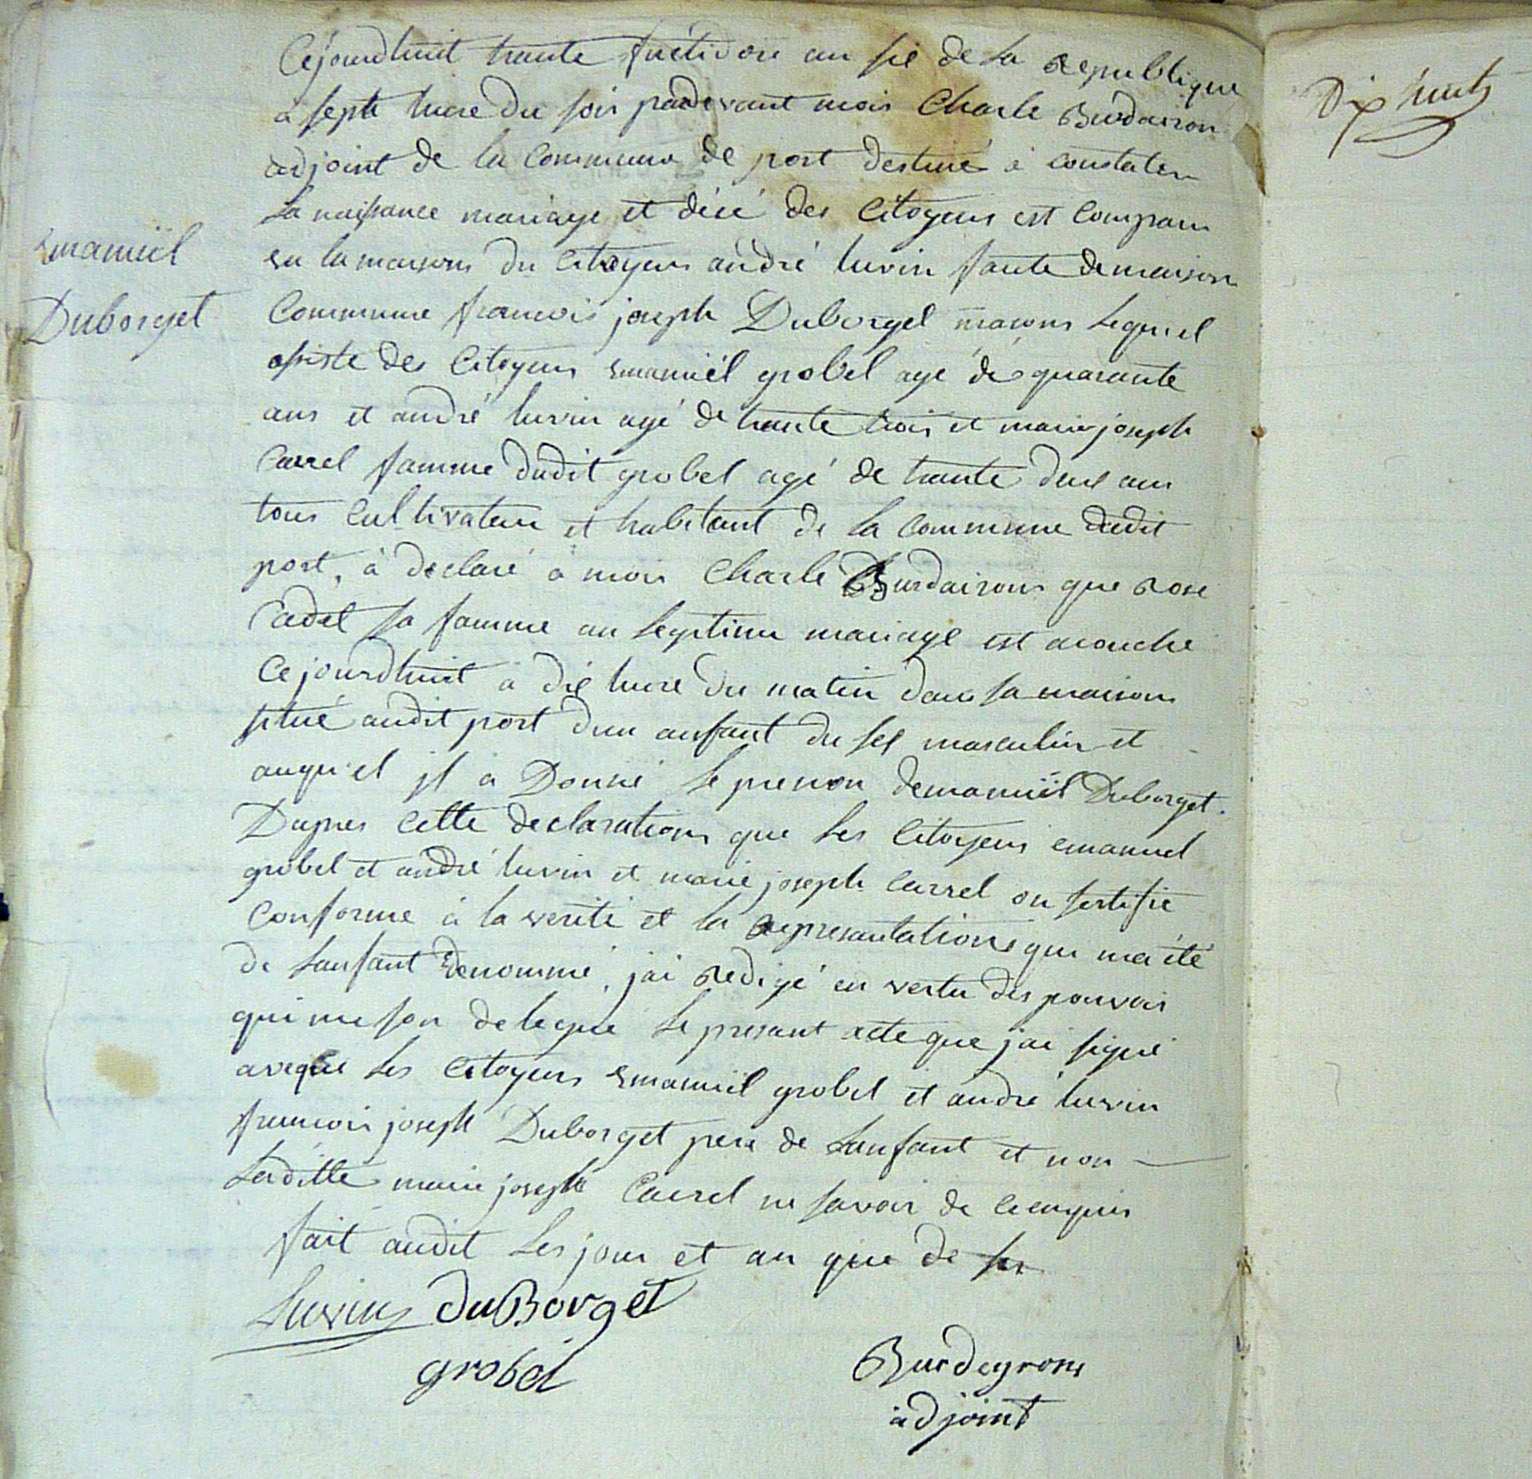 Cejourdhuit trante fructidore an sis de la Republique
a septe hure du soir pardevant mois Charle Burdairon
adjoint de la Commune de port destiné a constater
la naissance mariage et décé des Citoyens est comparu
en la maisons du Citoyens andré luvin faute de maison
Commune francois joseph Duborgel macons lequel
assiste des Citoyens Emanuël grobel agé de quarante
ans et andré luvin agé de trante trois et marie joseph
Carrel famme dudit grobel agé de trante deux ans
tous cultivateur et habitant de la commune dudit
port, à declaré à mois Charle Burdairons que Rose
Cadet sa famme an septime mariage est acouché
Ce jourdhuit a dix hure du matin dans sa maisons
situé audit port dun anfant du sex masculin et
auquel jl a Donné le prenon demanuël Duborget.
Dapres cette declarations que les Citoyens emanuel
grobel et andré luvin et marie joseph Carrel on sertifié
Conforme à la verité et la Representations qui ma été
de lanfant denommé, jai Redigé en vertu des pouvoir
qui me son delegué le presant acte que jai signé
aveque les Citoyens Emanuël grobel et andre luvin
francois joseph Duborget pere de lanfant et non
laditte marie joseph Carrel ne savoir de ce enquis
fait audit les jour et an que de sus
Luvin duBorget
grobel
Burdeyrons
adjoint
Emanuël
Duborget
Dix huit